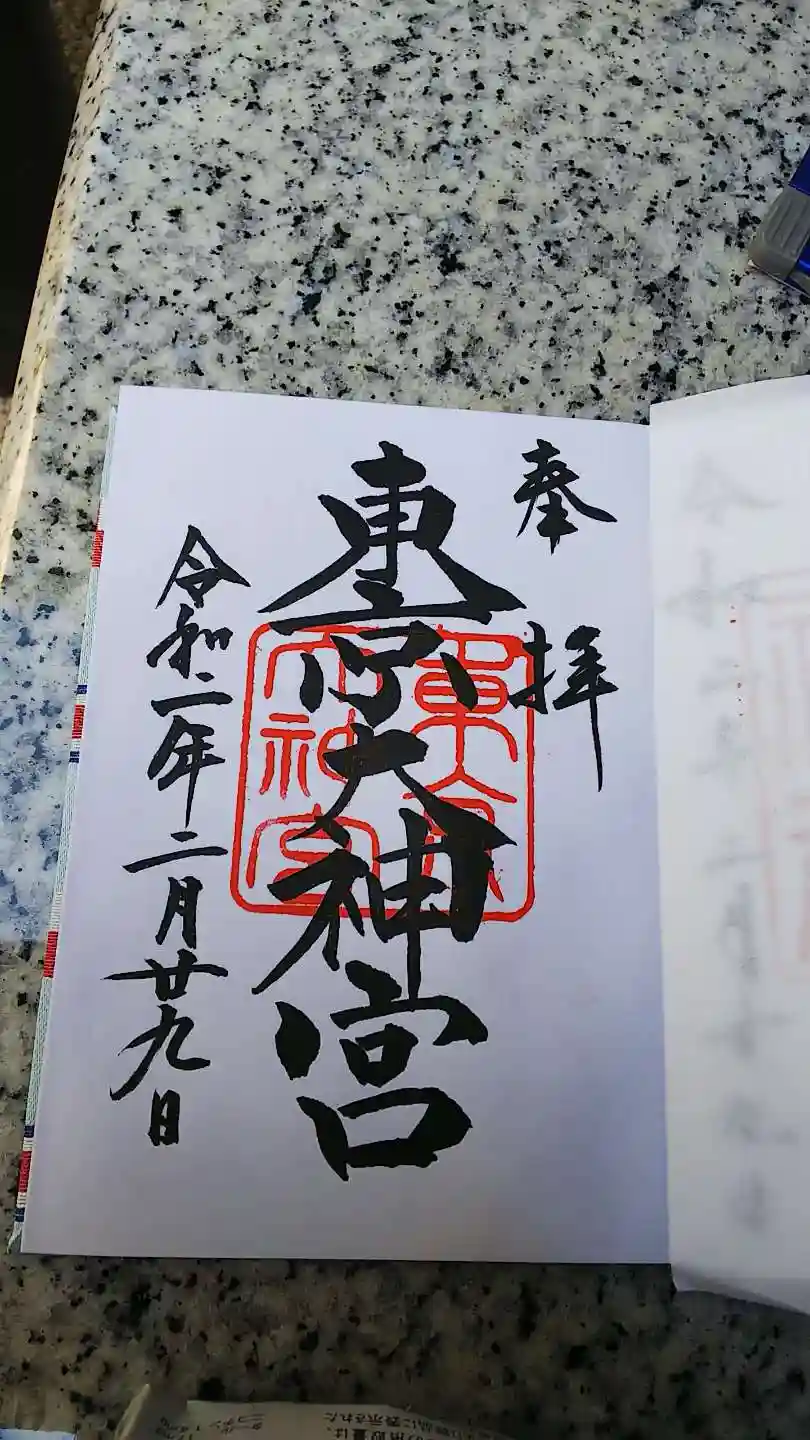 奉拝
東京大神宮
東京
大神宮
令和二年二月廿九日